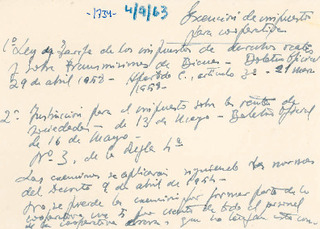 -1734- 4/9/63
Exención de impuestos
para cooperativas
1º Ley de Tarifa de los impuestos de derechos reales
y sobre transmisiones de Bienes - Boletín Oficial
29 de abril 1958 - Apartado C, artículo 3º - 21 marzo
1958 -
2º - Instrucción para el impuesto sobre las rentas de
sociedades - de 13 de Mayo - Boletín Oficial
de 16 de Mayo -
Nº 3, de la Regla 4ª
Las exenciones se aplicarán siguiendo las normas
del Decreto 9 de abril de 1954 -
No se pierde la exención por formar parte de la
cooperativa un 5 por ciento de todo el personal
de la cooperativa obrera, que no tengan esta con